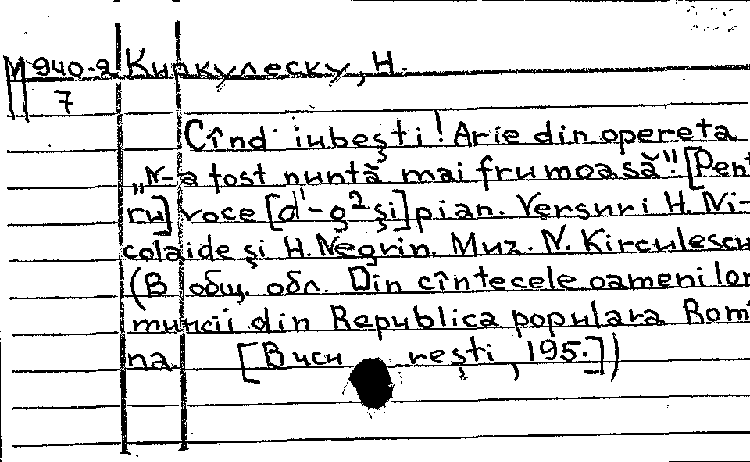 М 940-9 Киркулеску, Н.
7
Cînd iubeşti! Arie din opereta
„N-a fost nuntă mai frumoasă". [Pent
ru] voce [d'-g² şi] pian. Versuri H. Ni-
colaide şi H. Negrin. Muz. N. Kirculescu
(В общ. обл. Din cîntecele oamenilor
muncii din Republica populara Rom
na. [Bucu reşti, 195.])